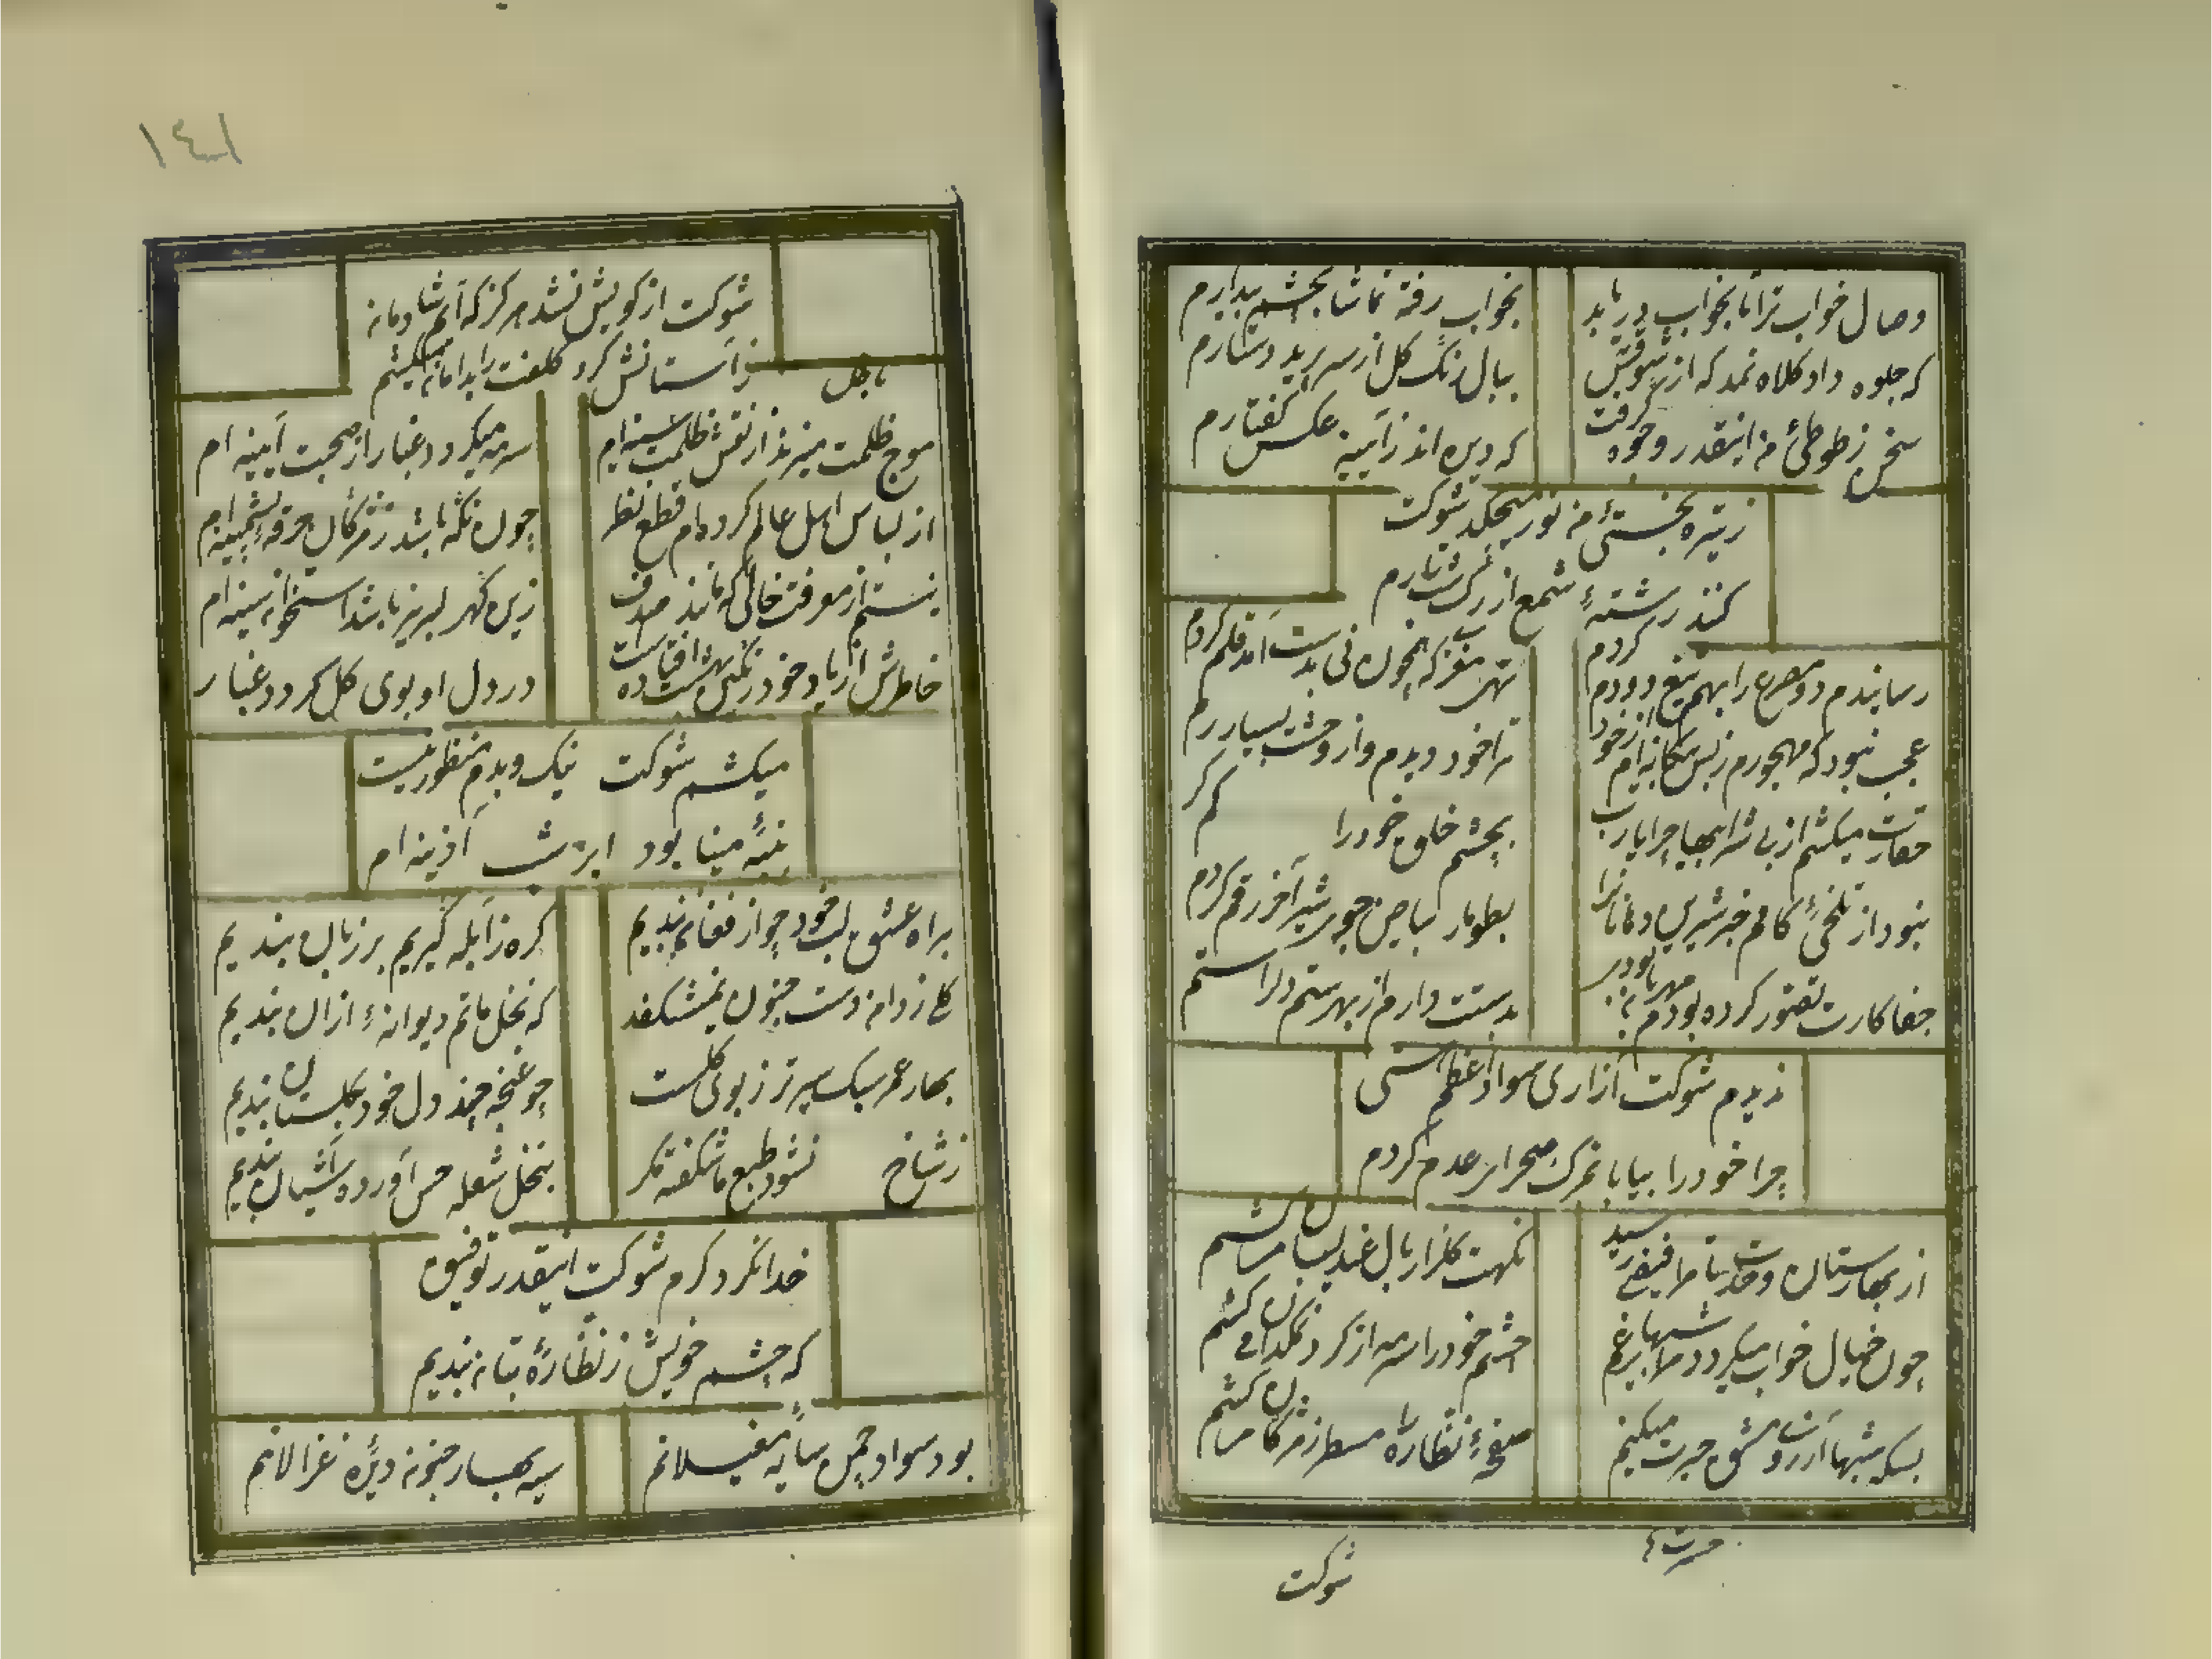 وصال خواب ترا تا بخواب دریابد
بخواب رفته تماشا بچشم بیدارم
که جلوه داد کلاه نمد که از شوقش
ببال رنگ گل از سر پرید دستارم
سخن ز طوطئ من اینقدر وجوه گرفت
که دیده اند ز آیینه عکس گفتارم
ز تیره بختئ من نور میچکد شوکت
کنند رشتهٔ شمع از رگ شب تارم
رساندم دو مصرع را بهم تیغ دو دم کردم
تهی مغزی که همچون نی بدست آمد قلم کردم
عجب نبود که مهجورم ز بس بیگانه‌ام از خود
ترا خود دیدم و از وحشت بسیار رم کردم
حقارت میکشم از بی شرابیها چرا یارب
بچشم خلق خود را کم
نبود از تلخئ کامم خبر شیرین دهانانرا
بطومار بیاض جوی شیر آخر رقم کردم
جفا کارت تصور کرده بودم مهربان بودی
بدستت دارم از بهر ستم دل راستم
ندیدم شوکت آزاری سواد اعظم هستی
چرا خود را بیابان مرگ صحرای عدم کردم
از بهارستان وحدت تا مرا فیضی رسید
نکهت گلزار بال عندلیبان میکشم
چون خیال خواب میگردد مرا شبها بچشم
چشم خود را سرمه از گرد نمکدان میکشم
بسکه شبها ز آرزویت مشق حیرت میکنم
صفحهٔ نظاره را مسطر ز مژگان میکشم
شوکت
۱۴۱
شوکت از کویش نشد هرگز که آیم شادمانه
ز آستانش گرد کلفت را بدامان میکشم
موج ظلمت میزند از نقش ظلمت سینه‌ام
سرمه میگردد غبار از صحبت آیینه ام
از لباس اهل عالم کرده‌ام قطع نظر
چون نگه باشد ز مژگان خرقهٔ پشمینه‌ام
نیستم از معرفت خالی که مانند صدف
زین گهر لبریز باشد استخوان سینه ام
خاطرش از یاد خود رنگین بهشت افتاده است
در دل او بوی گل گردد غبار
میکشم شوکت نیک و بدم منظور نیست
پنبهٔ مینا بود ابر شب آدینه ام
براه عشق لب خود چو از فغان بندیم
گره ز آبله گیریم بر زبان بندیم
گلی ز دامن دست جنون نمیشکفد
که نخل ماتم دیوانهٔ ازان بندیم
بهار عمر سبک سیرتر ز بوی گلست
چو غنچه چند دل خود بگلستان بندیم
ز شاخ نشود طبع ما شکفته مگر
بنخل شعله خس آورده آشیان بندیم
خدا نکرد کرم شوکت اینقدر توفیق
که چشم خویش ز نظارهٔ بتان بندیم
بود سواد چمن سایه مغیلانم
سیه بهار جنونم دیدهٔ غزالانم